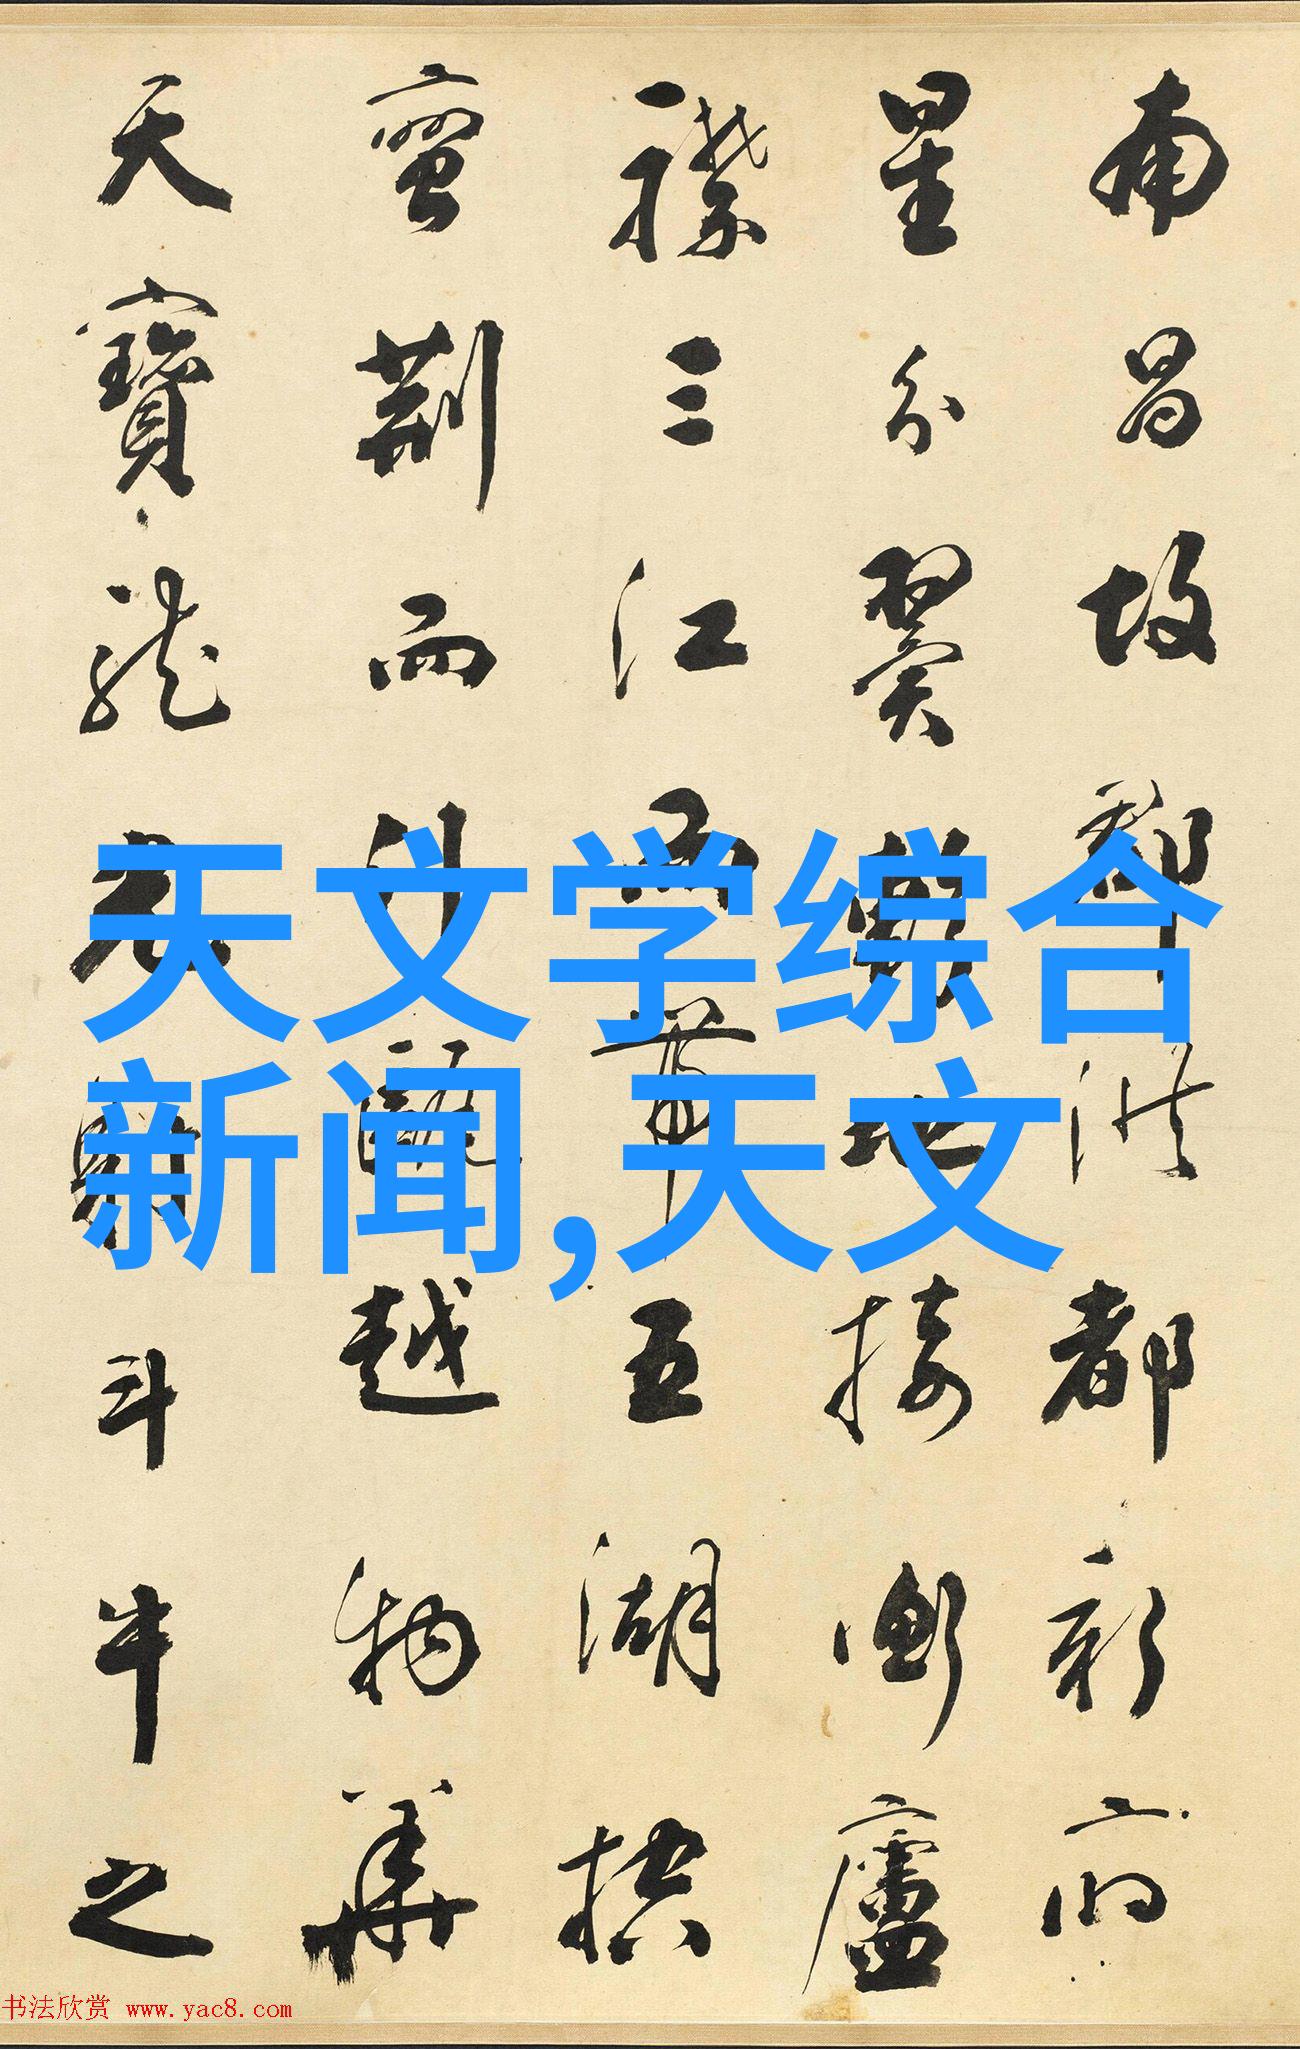 南昌故郡洪都新府
星分翼軫地接衡廬
襟三江而帶五湖控
蠻荊而引甌越物華
天寶龍光射斗牛之
天文学综合
新闻,天文
书法欣赏 www.yac8.com